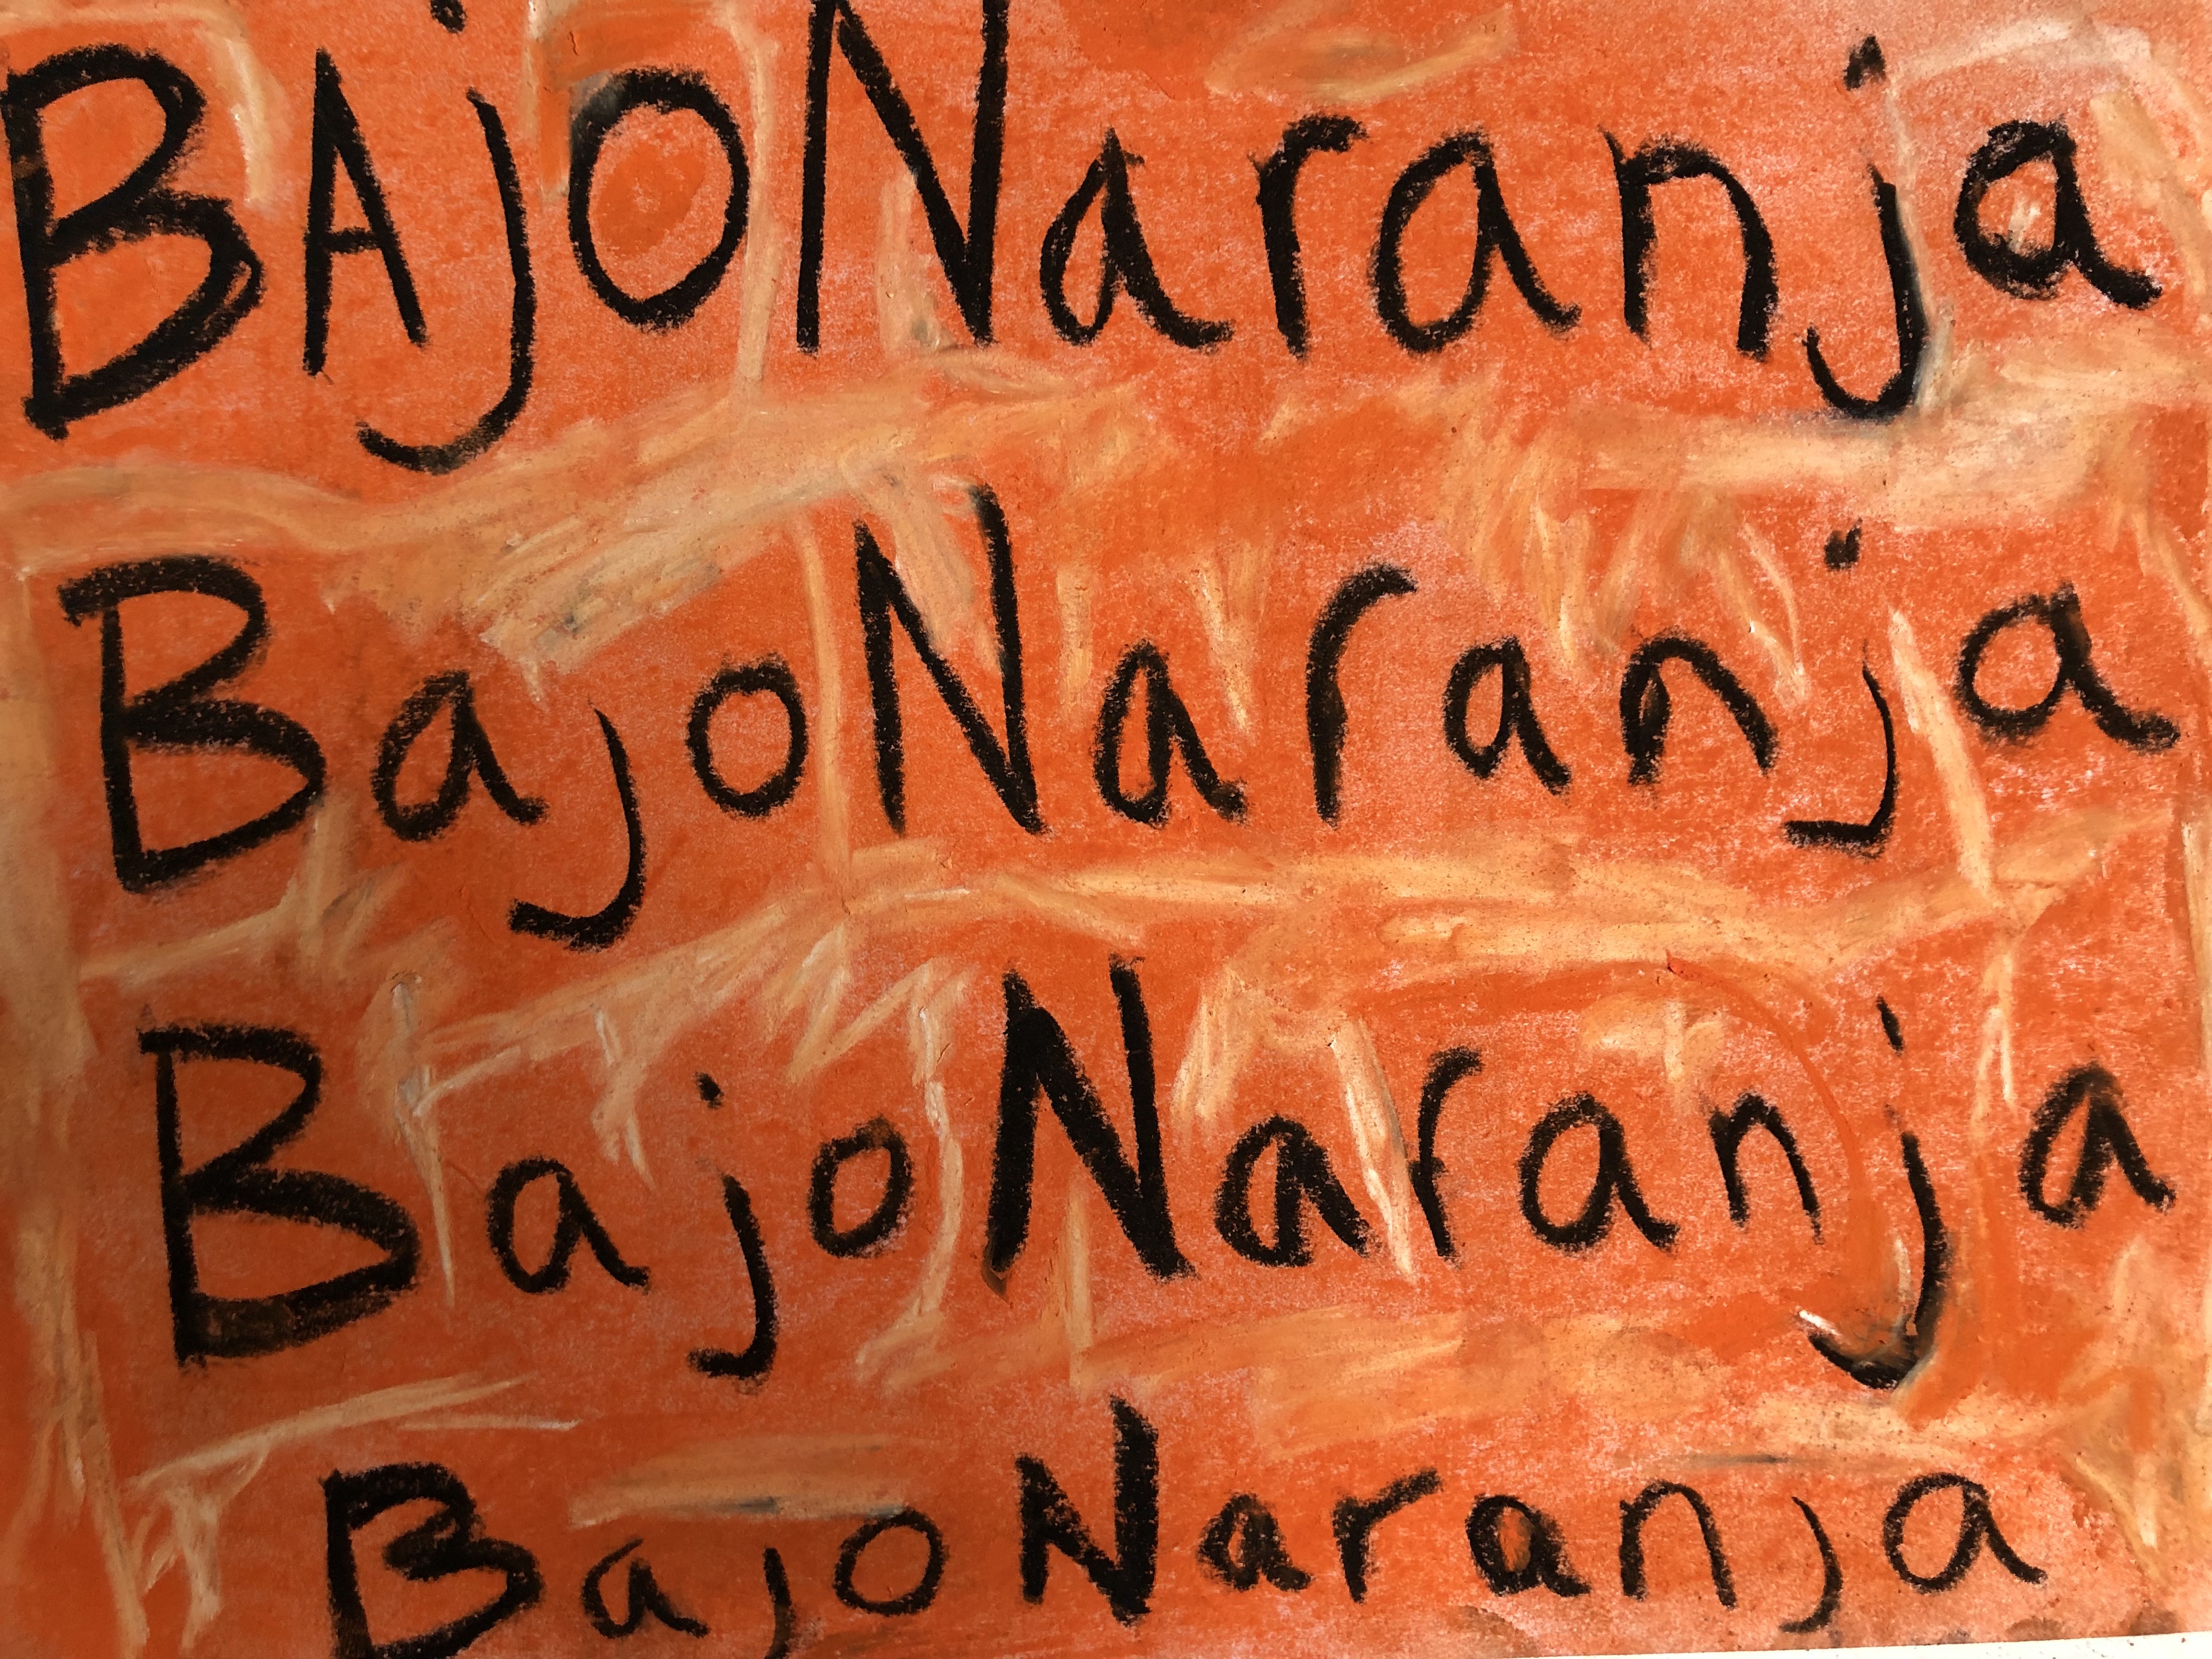 BAjoNaranja
BajoNaranja
BajoNaranja
BajoNaranja